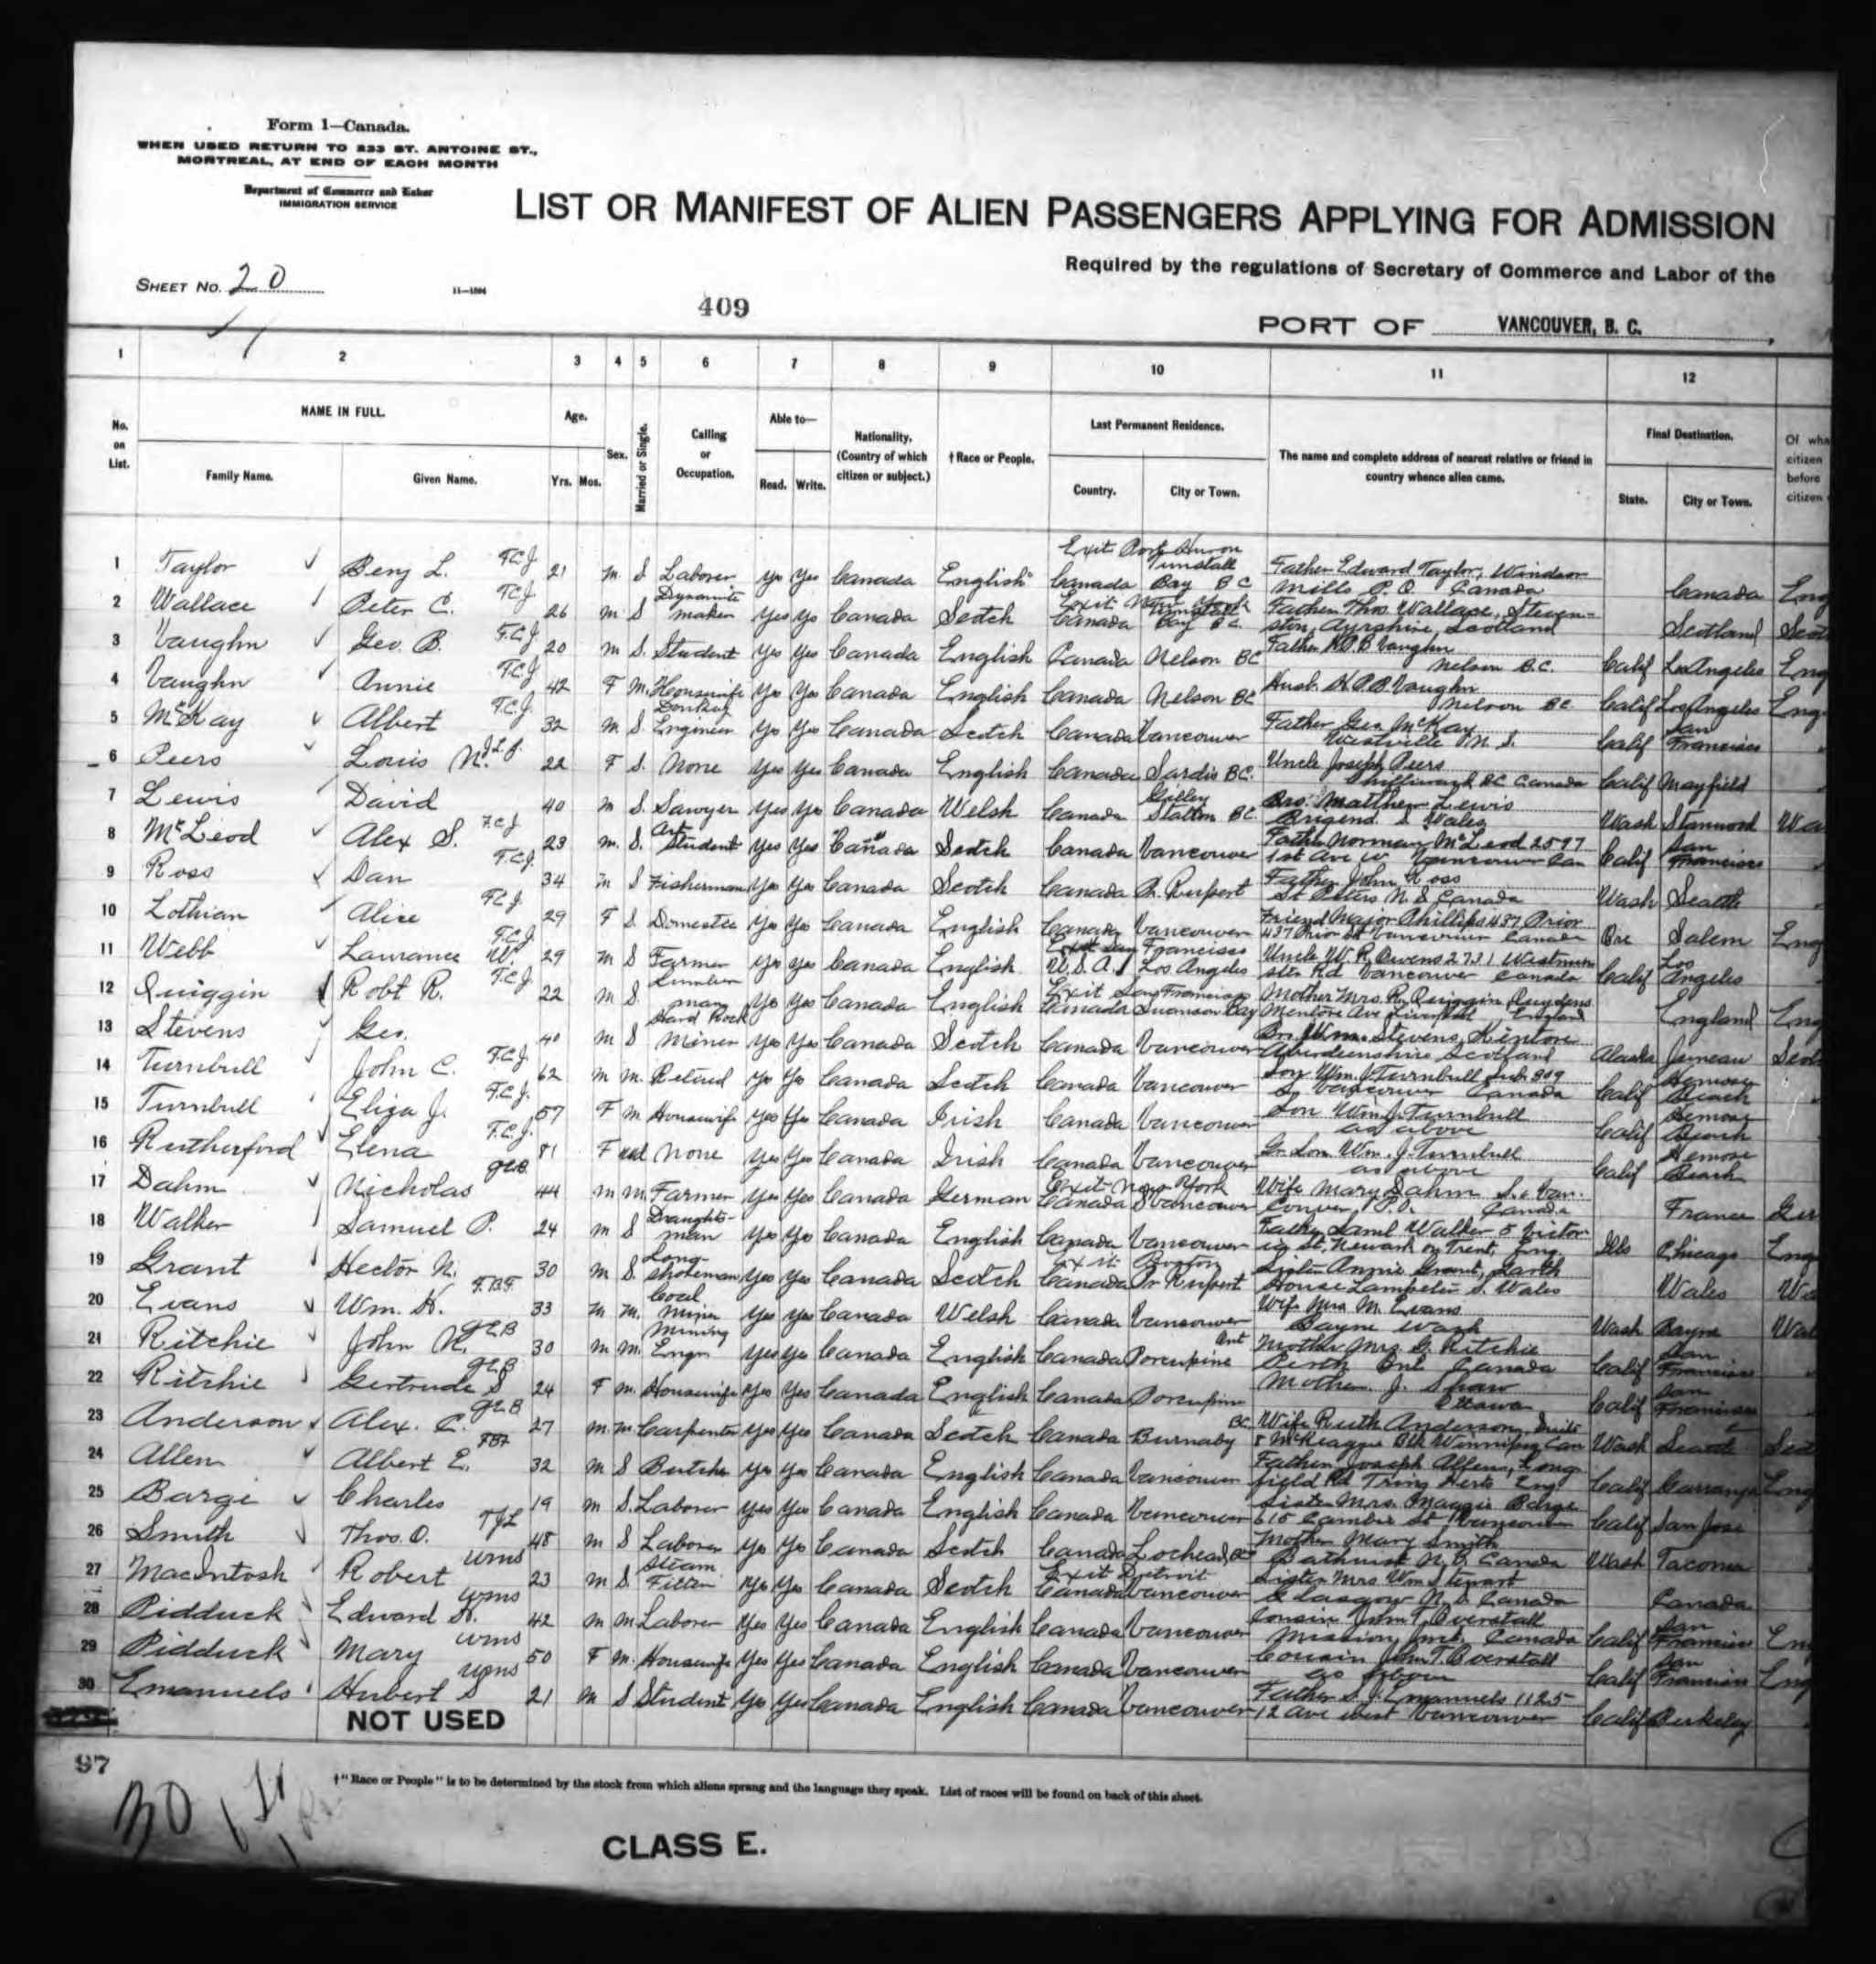 Form 1—Canada.
WHEN USED RETURN TO 233 ST. ANTOINE ST.,
MONTREAL, AT END OF EACH MONTH
Department of Commerce and Labor
IMMIGRATION SERVICE
LIST OR MANIFEST OF ALIEN PASSENGERS APPLYING FOR ADMISSION
Required by the regulations of Secretary of Commerce and Labor of the
SHEET No. 20
11—1594
409
PORT OF VANCOUVER, B. C.,
1 2 3 4 5 6 7 8 9 10 11 12
No. on List.
NAME IN FULL.
Family Name. Given Name.
Age.
Yrs. Mos.
Sex.
Married or Single.
Calling or Occupation.
Able to—
Read. Write.
Nationality. (Country of which citizen or subject.)
†Race or People.
Last Permanent Residence.
Country. City or Town.
The name and complete address of nearest relative or friend in country whence alien came.
Final Destination.
State. City or Town.
Of wha
citizen
before
citizen
1 Taylor Benj L. F.C.J. 21 M S Laborer Yes Yes Canada English Exit Port Huron Canada Tunstall Bay B C Father Edward Taylor, Windsor Mills P. Q. Canada Canada Eng
2 Wallace Peter C. F.C.J. 26 M S Dynamite maker Yes Yes Canada Scotch Exit New York Canada Tunstall Bay BC. Father Thos. Wallace, Stevenston, Ayrshire, Scotland Scotland Scot
3 Vaughn Geo. B. F.C.J. 20 M S. Student Yes Yes Canada English Canada Nelson BC Father Vaughn Nelson B.C. Calif Los Angeles Eng
4 Vaughn Annie F.C.J. 42 F M. Housewife Yes Yes Canada English Canada Nelson BC Husb. Vaughn Nelson BC Calif Los Angeles Eng
5 McKay Albert F.C.J. 32 M S. Donkey Engineer Yes Yes Canada Scotch Canada Vancouver Father Geo. McKay Westville N. S. Calif San Francisco "
6 Peers Louis N. 22 F S. None Yes Yes Canada English Canada Sardis BC. Uncle Joseph Peers Chilliwack BC Canada Calif Mayfield "
7 Lewis David 40 M S. Sawyer Yes Yes Canada Welsh Canada Gilley Station BC. Bro. Matthew Lewis Brigend S Wales Wash Stanwood Wa
8 McLeod Alex S. F.C.J. 23 M. S. Art Student Yes Yes Canada Scotch Canada Vancouver Father Norman McLeod 2597 1st Ave W Vancouver Can Calif San Francisco "
9 Ross Dan F.C.J. 34 M S Fisherman Yes Yes Canada Scotch Canada Pr. Rupert Father John Ross St Peters N S Canada Wash Seattle "
10 Lothian Alice F.C.J. 29 F S. Domestic Yes Yes Canada English Canada Vancouver Friend Major Phillips 437 Prior 437 Prior St Vancouver Canada Ore Salem Eng
11 Webb Laurance W. F.C.J. 29 M S Farmer Yes Yes Canada English Exit San Francisco U.S.A. Los Angeles Uncle W. R. Owens 2731 Westminster Rd Vancouver Canada Calif Los Angeles "
12 Quiggin Robt R. F.C.J. 22 M S. Lumberman Yes Yes Canada English Exit San Francisco Canada Swanson Bay Mother Mrs. R. Quiggin Menlove Ave Liverpool England England Eng
13 Stevens Geo. 40 M S Hard Rock Miner Yes Yes Canada Scotch Canada Vancouver Bro. Wm. Stevens, Kintore Aberdeenshire Scotland Alaska Juneau Scot
14 Turnbull John C. F.C.J. 62 M M. Retired Yes Yes Canada Scotch Canada Vancouver Son Wm. J. Turnbull Sub 309 S Vancouver Canada Calif Hemosa Beach
15 Turnbull Eliza J. F.C.J. 57 F M Housewife Yes Yes Canada Irish Canada Vancouver Son Wm. J. Turnbull as above Calif Hemosa Beach
16 Rutherford Elena F.C.J. 81 F wd None Yes Yes Canada Irish Canada Vancouver Gr. Son Wm. J. Turnbull as above Calif Hemosa Beach
17 Dahm Nicholas 44 M M. Farmer Yes Yes Canada German Exit New York Canada S Vancouver Wife Mary Dahm So. Vancouver, P.O. Canada France Ger
18 Walker Samuel P. 24 M S Draughtsman Yes Yes Canada English Canada Vancouver Father Saml Walker 5 Victoria St, Newark on Trent, Eng. Ills Chicago Eng
19 Grant Hector N. 30 M S. Longshoreman Yes Yes Canada Scotch Exit Boston Canada Pr Rupert Sister Annie Grant, House Lampeter S. Wales Wales Wa
20 Evans Wm. H. F.B.F. 33 M M. Coal Miner Yes Yes Canada Welsh Canada Vancouver Wife Mrs M. Evans Bayne Wash Wash Bayne Wal
21 Ritchie John N. GEB 30 M M. Mining Engr. Yes Yes Canada English Canada Porcupine Ont Mother Mrs. G. Ritchie Perth Ont Canada Calif San Francisco "
22 Ritchie Gertrude S GEB 24 F M. Housewife Yes Yes Canada English Canada Porcupine Mother J. Shaw Ottawa Calif San Francisco "
23 Anderson Alex. C. GEB 27 M. M. Carpenter Yes Yes Canada Scotch Canada Burnaby BC. Wife Ruth Anderson, Suite 8 Blk Winnipeg Can Wash Seattle Scot
24 Allen Albert E. FBF 32 M S Butcher Yes Yes Canada English Canada Vancouver Father Joseph Allen, Longfield Rd Tring Herts Eng Calif Eng
25 Barge Charles 19 M S. Laborer Yes Yes Canada English Canada Vancouver Sister Mrs. Maggie Barge 615 Cambie St Vancouver Calif San Jose "
26 Smith Thos. O. TJL 48 M S Laborer Yes Yes Canada Scotch Canada Lochead, BC Mother Mary Smith Bathurst N. B. Canada Wash Tacoma "
27 MacIntosh Robert WMS 23 M S. Steam Fitter Yes Yes Canada Scotch Exit Detroit Canada Vancouver Sister Mrs Wm Stewart Glasgow N. S. Canada Canada
28 Pidduck Edward H. WMS 42 M M Laborer Yes Yes Canada English Canada Vancouver Cousin John T. Overstall Mission Canada Calif San Francisco Eng
29 Pidduck Mary WMS 50 F M. Housewife Yes Yes Canada English Canada Vancouver Cousin John T. Overstall as above Calif San Francisco Eng
30 Emanuels Hubert S WMS 21 M S Student Yes Yes Canada English Canada Vancouver Father S. J. Emanuels 1125 12 Ave West Vancouver Calif Berkeley "
NOT USED
97
30
†"Race or People" is to be determined by the stock from which aliens sprang and the language they speak. List of races will be found on back of this sheet.
CLASS E.